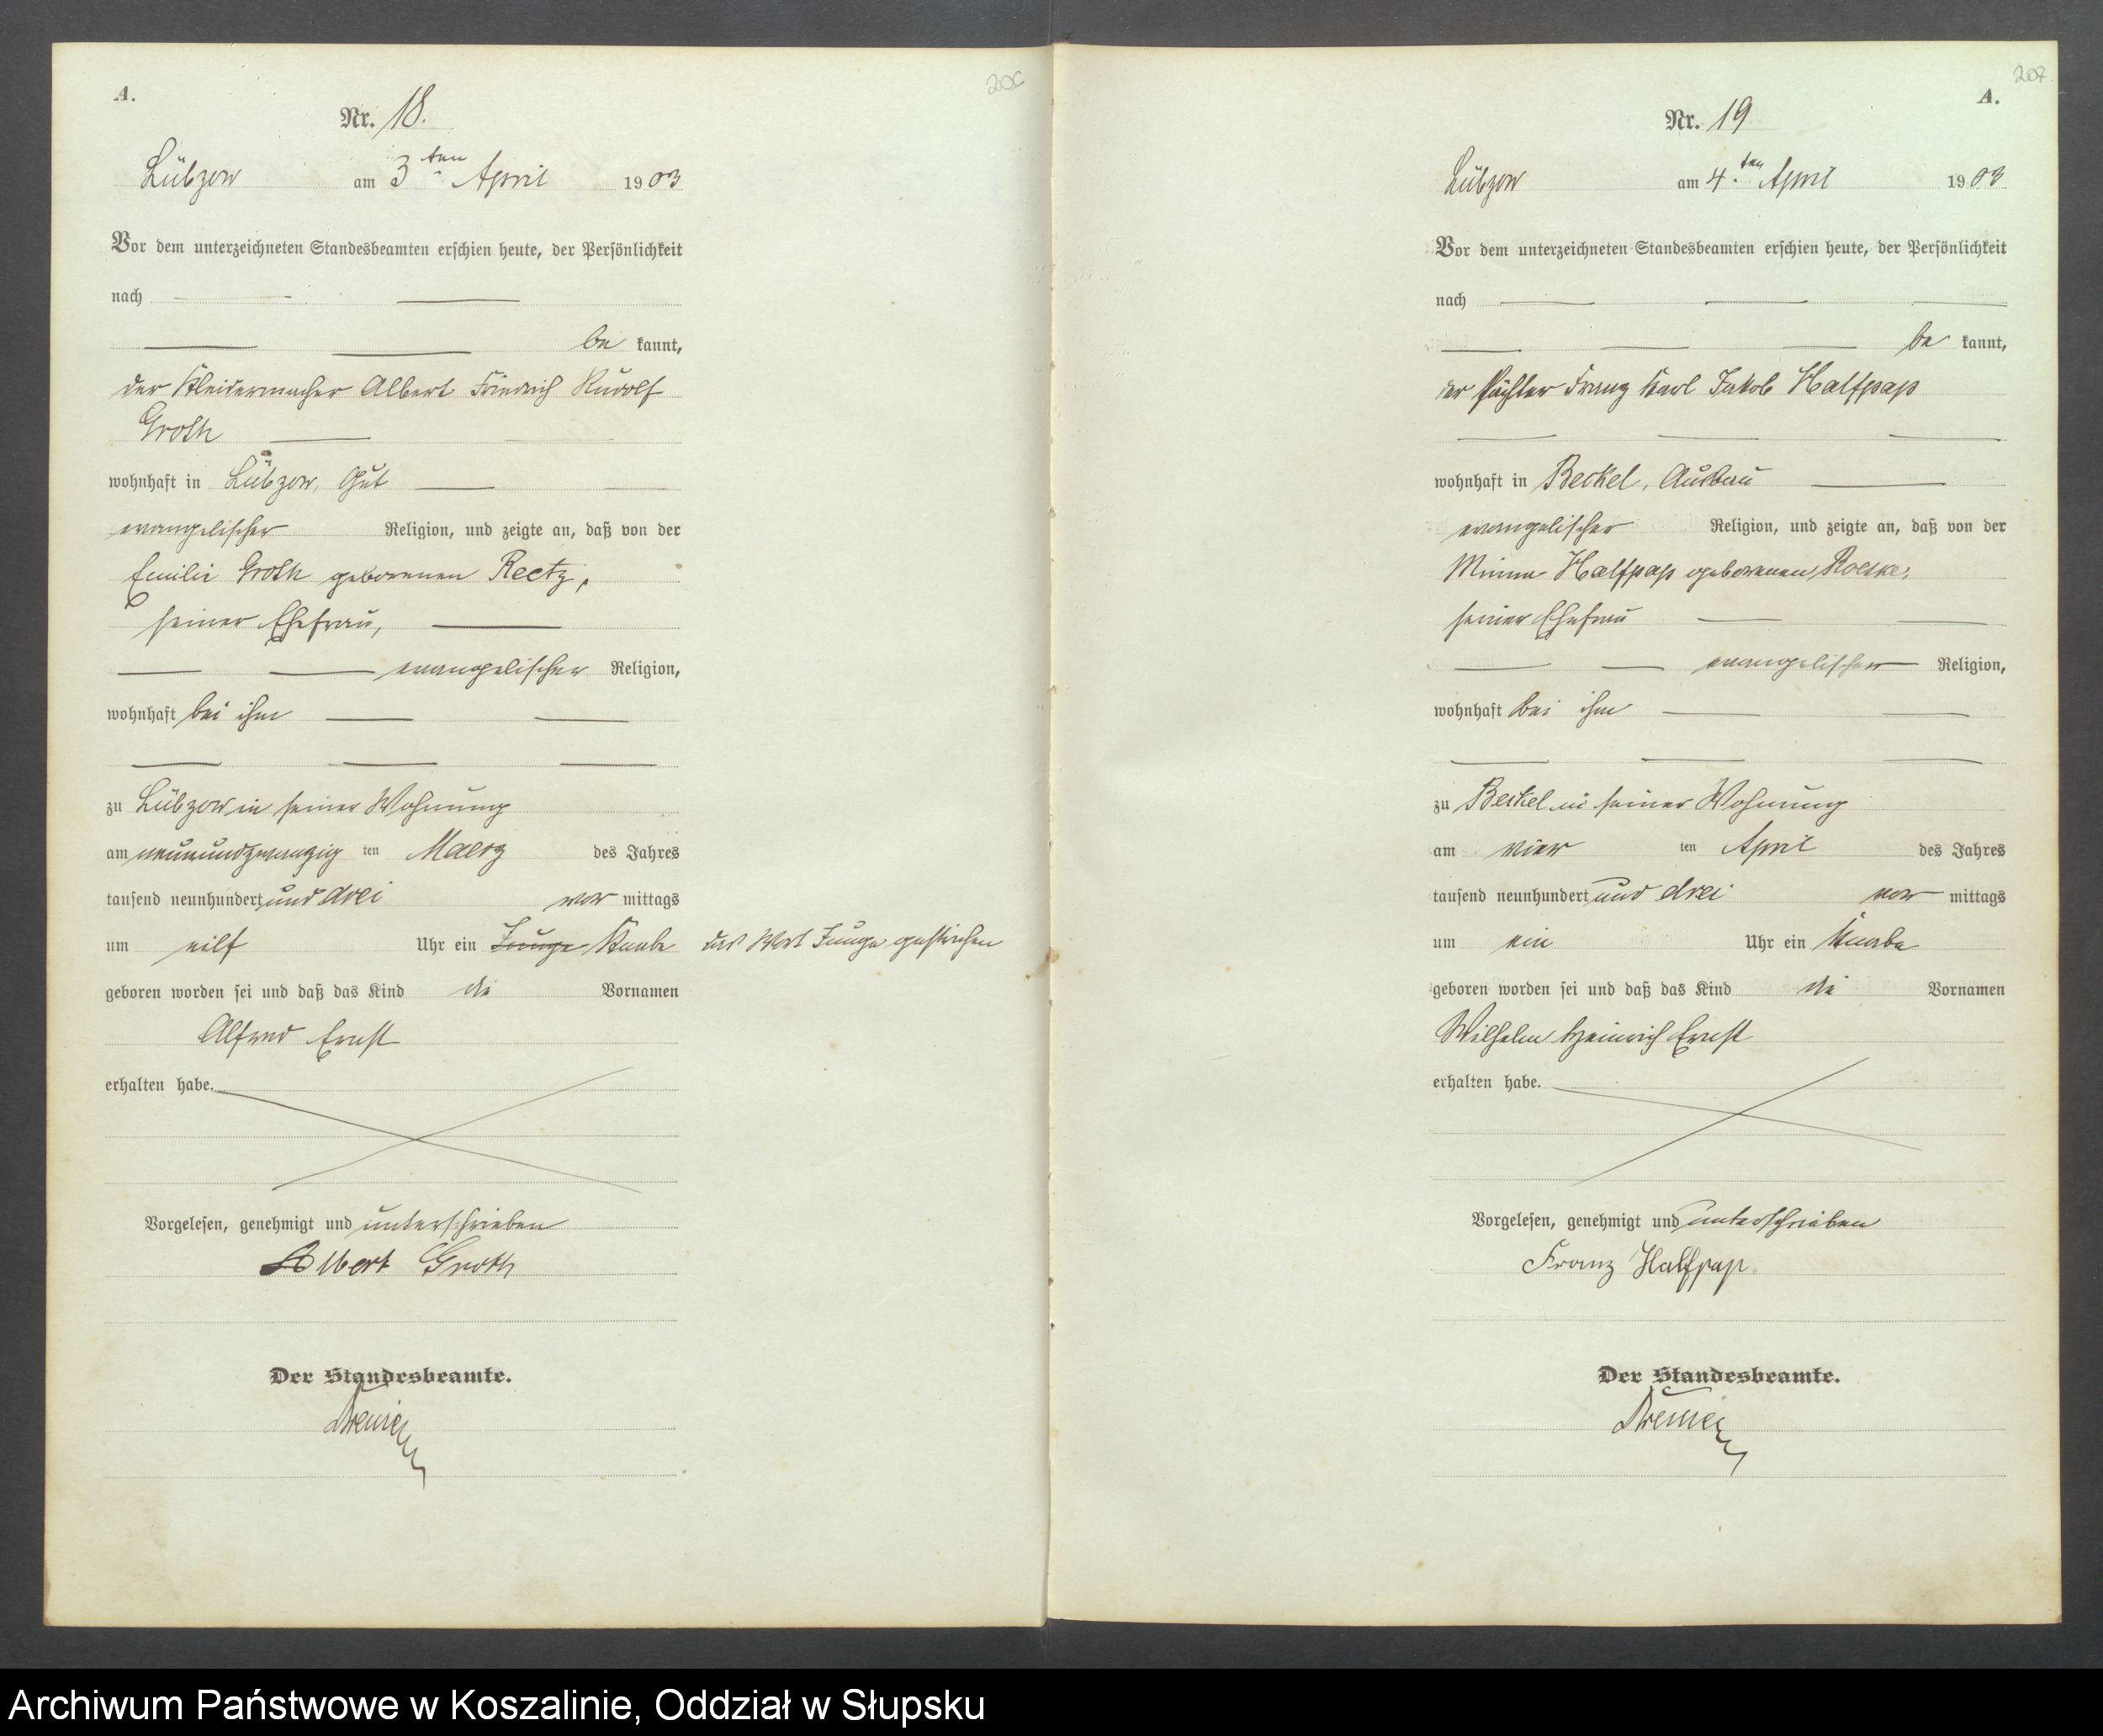 A.
Nr. 18.
Lübzow am 3ten April 1903
Vor dem unterzeichneten Standesbeamten erschien heute, der Persönlichkeit
nach
be kannt,
der Kleidermacher Albert Friedrich Rudolf
Groth
wohnhaft in Lübzow, Gut
evangelischer Religion, und zeigte an, daß von der
Emilie Groth geborenen Reetz,
seiner Ehefrau,
evangelischer Religion,
wohnhaft bei ihm
zu Lübzow in seiner Wohnung
am neunundzwanzig ten Maerz des Jahres
tausend neunhundert und drei vor mittags
um eilf Uhr ein Junge Knabe das Wort Junge gestrichen
geboren worden sei und daß das Kind die Vornamen
Alfred Ernst
erhalten habe.
Vorgelesen, genehmigt und unterschrieben
Albert Groth
Der Standesbeamte.
207
A.
Nr. 19
Lübzow am 4.ten April 1903
Vor dem unterzeichneten Standesbeamten erschien heute, der Persönlichkeit
nach
be kannt,
der Pächter Franz Karl Jakob Halfpap
wohnhaft in Beckel, Ausbau
evangelischer Religion, und zeigte an, daß von der
Minna Halfpap geborenen Roeske,
seiner Ehefrau
evangelischer Religion,
wohnhaft bei ihm
zu Beckel in seiner Wohnung
am vier ten April des Jahres
tausend neunhundert und drei vor mittags
um ein Uhr ein Knabe
geboren worden sei und daß das Kind die Vornamen
Wilhelm Heinrich Ernst
erhalten habe.
Vorgelesen, genehmigt und unterschrieben
Franz Halfpap.
Der Standesbeamte.
Archiwum Państwowe w Koszalinie, Oddział w Słupsku